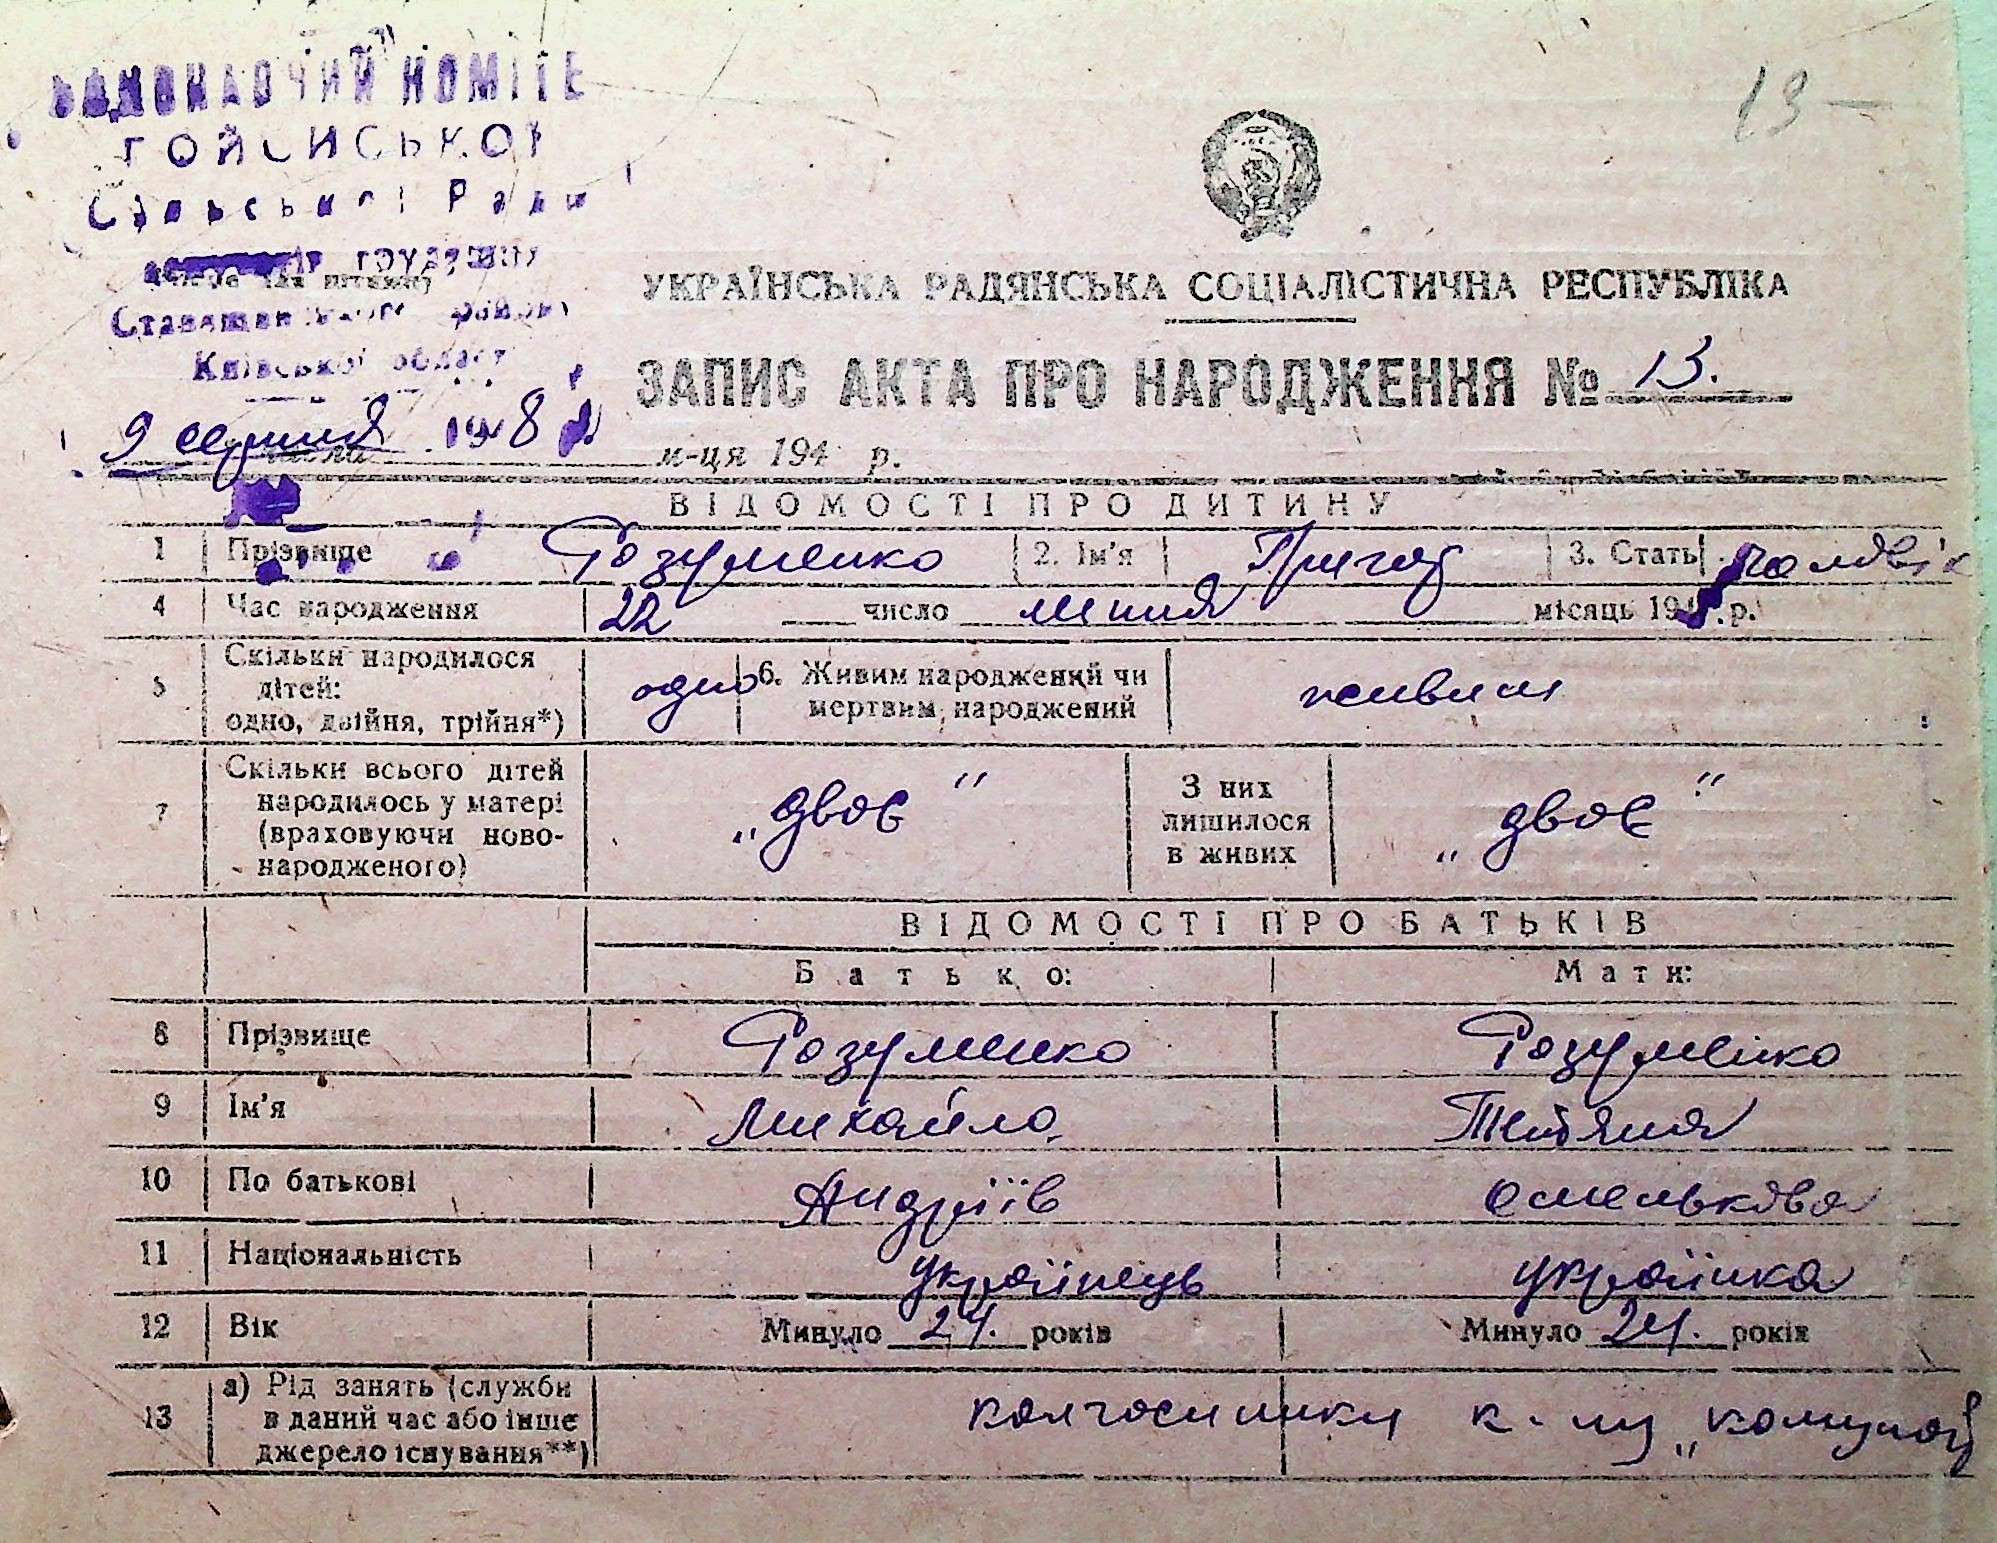 13 —
ГОЙСИСЬКОЇ
Сільської Ради
Ставищанського району
Київської област
9 серпня 1948
УКРАЇНСЬКА РАДЯНСЬКА СОЦІАЛІСТИЧНА РЕСПУБЛІКА
ЗАПИС АКТА ПРО НАРОДЖЕННЯ № 13.
числа м-ця 194 р.
ВІДОМОСТІ ПРО ДИТИНУ
1 Прізвище Розуменко 2. Ім'я Григор 3. Стать чоловік
4 Час народження 22 число липня місяць 1948 р.
5 Скільки народилося дітей: одно, двійня, трійня*) одно 6. Живим народжений чи мертвим народжений живим
7 Скільки всього дітей народилось у матері (враховуючи ново-народженого) „двоє" З них лишилося в живих „двоє"
ВІДОМОСТІ ПРО БАТЬКІВ
Батько: Мати:
8 Прізвище Розуменко Розуменко
9 Ім'я Михайло. Тетяна
10 По батькові Андріїв Омелькова
11 Національність українець українка
12 Вік Минуло 24. років Минуло 24. років
13 а) Рід занять (служби в даний час або інше джерело існування**) колгоспники к-пу „